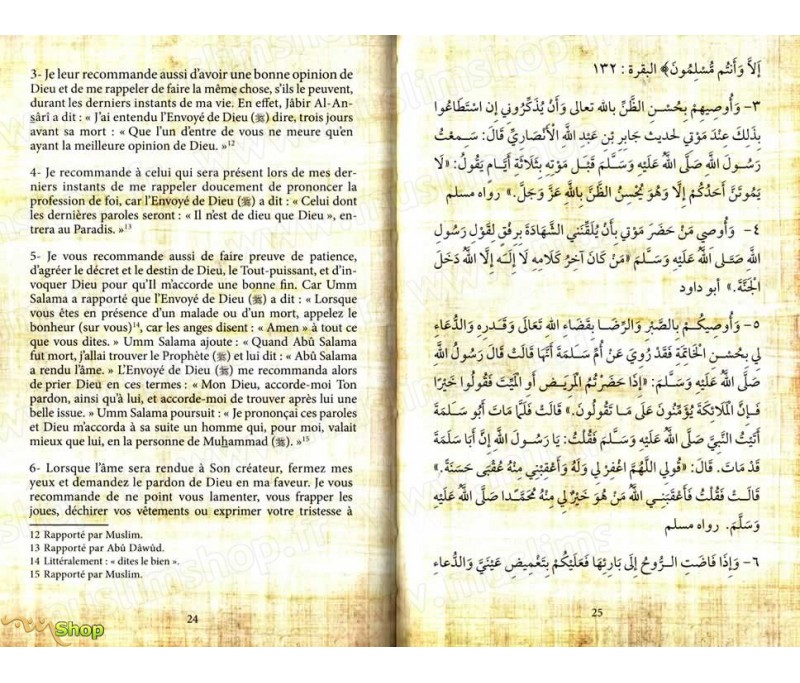 3- Je leur recommande aussi d'avoir une bonne opinion de
Dieu et de me rappeler de faire la même chose, s'ils le peuvent,
durant les derniers instants de ma vie. En effet, Jâbir Al-An-
ṣârî a dit : « J'ai entendu l'Envoyé de Dieu (ﷺ) dire, trois jours
avant sa mort : « Que l'un d'entre de vous ne meure qu'en
ayant la meilleure opinion de Dieu. »12
4- Je recommande à celui qui sera présent lors de mes der-
niers instants de me rappeler doucement de prononcer la
profession de foi, car l'Envoyé de Dieu (ﷺ) a dit : « Celui dont
les dernières paroles seront : « Il n'est de dieu que Dieu », en-
trera au Paradis. »13
5- Je vous recommande aussi de faire preuve de patience,
d'agréer le décret et le destin de Dieu, le Tout-puissant, et d'in-
voquer Dieu pour qu'Il m'accorde une bonne fin. Car Umm
Salama a rapporté que l'Envoyé de Dieu (ﷺ) a dit : « Lorsque
vous êtes en présence d'un malade ou d'un mort, appelez le
bonheur (sur vous)14, car les anges disent : « Amen » à tout ce
que vous dites. » Umm Salama ajoute : « Quand Abû Salama
fut mort, j'allai trouver le Prophète (ﷺ) et lui dit : « Abû Salama
a rendu l'âme. » L'Envoyé de Dieu (ﷺ) me recommanda alors
de prier Dieu en ces termes : « Mon Dieu, accorde-moi Ton
pardon, ainsi qu'à lui, et accorde-moi de trouver après lui une
belle issue. » Umm Salama poursuit : « Je prononçai ces paroles
et Dieu m'accorda à sa suite un homme qui, pour moi, valait
mieux que lui, en la personne de Muḥammad (ﷺ). »15
6- Lorsque l'âme sera rendue à Son créateur, fermez mes
yeux et demandez le pardon de Dieu en ma faveur. Je vous
recommande de ne point vous lamenter, vous frapper les
joues, déchirer vos vêtements ou exprimer votre tristesse à
12 Rapporté par Muslim.
13 Rapporté par Abû Dâwûd.
14 Littéralement : « dites le bien ».
15 Rapporté par Muslim.
24
Shop
إَلاَّ وَأَنتُم مُّسْلِمُونَ﴾ البقرة : ١٣٢
٣- وَأُوصِيهِمْ بِحُسْنِ الظَّنِّ بالله تعالى وَأَنْ يُذَكِّرُونِي إِن اسْتَطَاعُوا
بِذَلِكَ عِنْدَ مَوْتِي لحديث جَابِرِ بْنِ عَبْدِ اللَّهِ الْأَنْصَارِيِّ قَالَ: سَمِعْتُ
رَسُولَ اللَّهِ صَلَّى اللَّهُ عَلَيْهِ وَسَلَّمَ قَبْلَ مَوْتِهِ بِثَلَاثَةِ أَيَّامٍ يَقُولُ: «لَا
يَمُوتَنَّ أَحَدُكُمْ إِلَّا وَهُوَ يُحْسِنُ الظَّنَّ بِاللَّهِ عَزَّ وَجَلَّ.» رواه مسلم
٤- وَأُوصِي مَنْ حَضَرَ مَوْتِي بِأَنْ يُلَقِّنَنِي الشَّهَادَةَ بِرِفْقٍ لقَوْلِ رَسُولِ
اللَّهِ صَلَى اللَّهُ عَلَيْهِ وَسَلَّمَ «مَنْ كَانَ آخِرُ كَلَامِهِ لَا إِلَهَ إِلَّا اللَّهُ دَخَلَ
الْجَنَّةَ.» أبو داود
٥- وَأُوصِيكُمْ بِالصَّبْرِ وَالرِّضَا بِقَضَاءِ اللَّهِ تَعَالَى وَقَدَرِهِ وَالدُّعَاءِ
لِي بِحُسْنِ الْخَاتِمَةِ فَقَدْ رُوِيَ عَنْ أُمِّ سَلَمَةَ أَنَّهَا قَالَتْ قَالَ رَسُولُ اللَّهِ
صَلَّى اللَّهُ عَلَيْهِ وَسَلَّمَ: «إِذَا حَضَرْتُمُ الْمَرِيضَ أَوِ الْمَيِّتَ فَقُولُوا خَيْرًا
فَإِنَّ الْمَلَائِكَةَ يُؤَمِّنُونَ عَلَى مَا تَقُولُونَ.» قَالَتْ فَلَمَّا مَاتَ أَبُو سَلَمَةَ
أَتَيْتُ النَّبِيَّ صَلَّى اللَّهُ عَلَيْهِ وَسَلَّمَ فَقُلْتُ: يَا رَسُولَ اللَّهِ إِنَّ أَبَا سَلَمَةَ
قَدْ مَاتَ. قَالَ: «قُولِي اللَّهُمَّ اغْفِرْ لِي وَلَهُ وَأَعْقِبْنِي مِنْهُ عُقْبَى حَسَنَةً.»
قَالَتْ فَقُلْتُ فَأَعْقَبَنِي اللَّهُ مَنْ هُوَ خَيْرٌ لِي مِنْهُ مُحَمَّدًا صَلَّى اللَّهُ عَلَيْهِ
وَسَلَّمَ. رواه مسلم
٦- وَإِذَا فَاضَتِ الرُّوحُ إِلَى بَارِئِهَا فَعَلَيْكُمْ بِتَغْمِيضِ عَيْنَيَّ وَالدُّعَاءِ
25